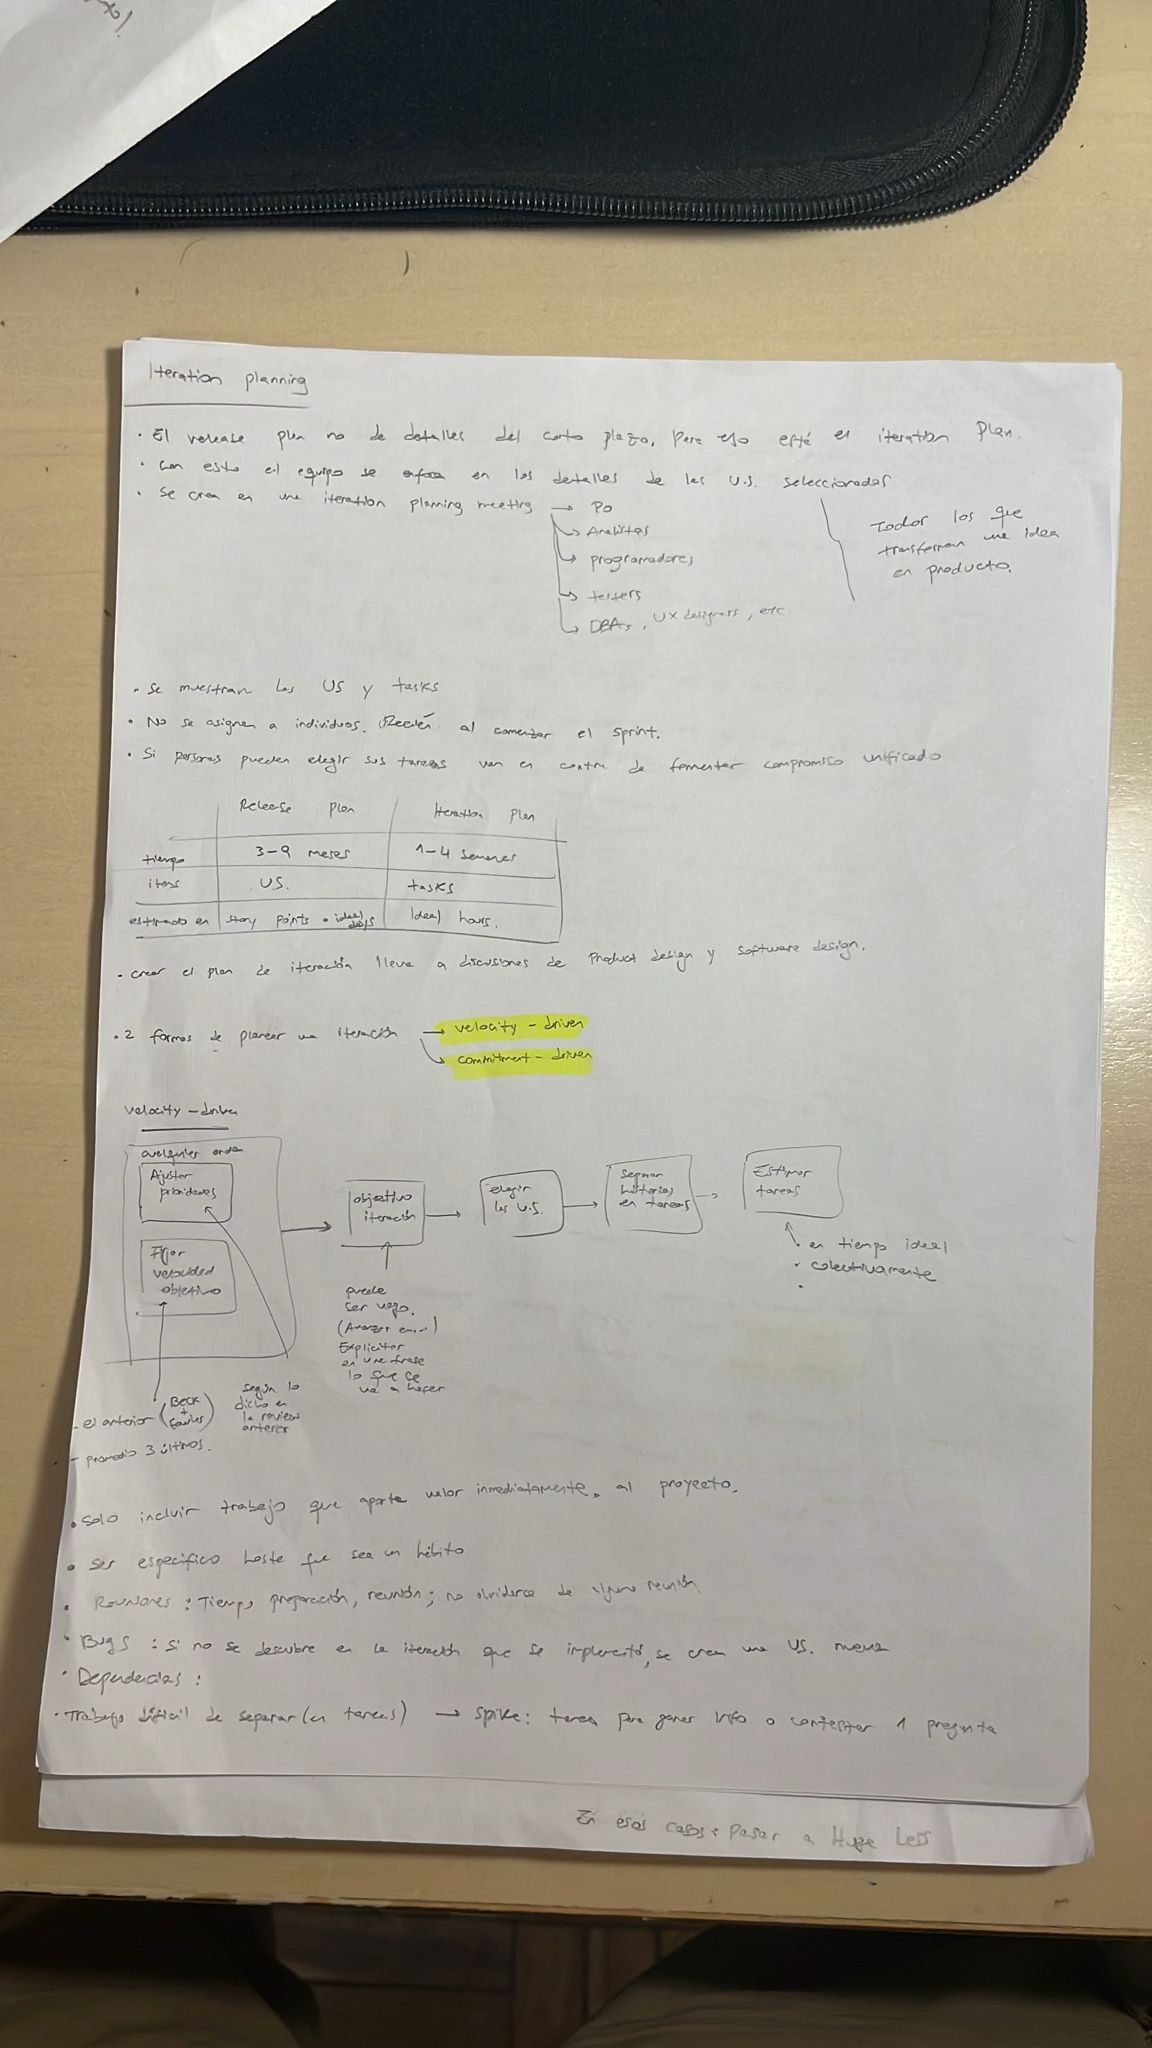 Iteration planning
· El release plan no da detalles del corto plazo, para eso está el iteration plan.
· Con esto el equipo se enfoca en los detalles de las U.S. seleccionadas
· Se crea en una iteration planning meeting → PO
→ Analistas
→ programadores
→ testers
→ DBAs, UX designers, etc.
Todos los que
transforman una idea
en producto.
· Se muestran las US y tasks
· No se asignan a individuos. Recién al comenzar el sprint.
· Si personas pueden elegir sus tareas van en contra de fomentar compromiso unificado
Release plan Iteration plan
tiempo 3-9 meses 1-4 semanas
items U.S. tasks
estimado en story points o ideal days Ideal hours.
· crear el plan de iteración lleva a discusiones de Product design y software design.
· 2 formas de planear una iteración → velocity-driven
→ commitment-driven
velocity-driven
cualquier orden
Ajustar
prioridades
Fijar
velocidad
objetivo
objetivo
iteración
elegir
las U.S.
Separar
historias
en tareas
Estimar
tareas
· en tiempo ideal
· colectivamente
·
puede
ser vago.
(Avanzar en...)
Explicitar
en una frase
lo que se
va a hacer
según lo
dicho en
la review
anterior
- el anterior (Beck + Fowler)
- promedio 3 últimos.
· Solo incluir trabajo que aporte valor inmediatamente. al proyecto.
· Ser específico hasta que sea un hábito
· Reuniones: Tiempo preparación, reunión; no olvidarse de alguna reunión.
· Bugs: Si no se descubre en la iteración que se implementó, se crea una US. nueva
· Dependencias:
· Trabajo difícil de separar (en tareas) → spike: tarea para ganar info o contestar 1 pregunta
En esos casos: Pasar a Huge Less